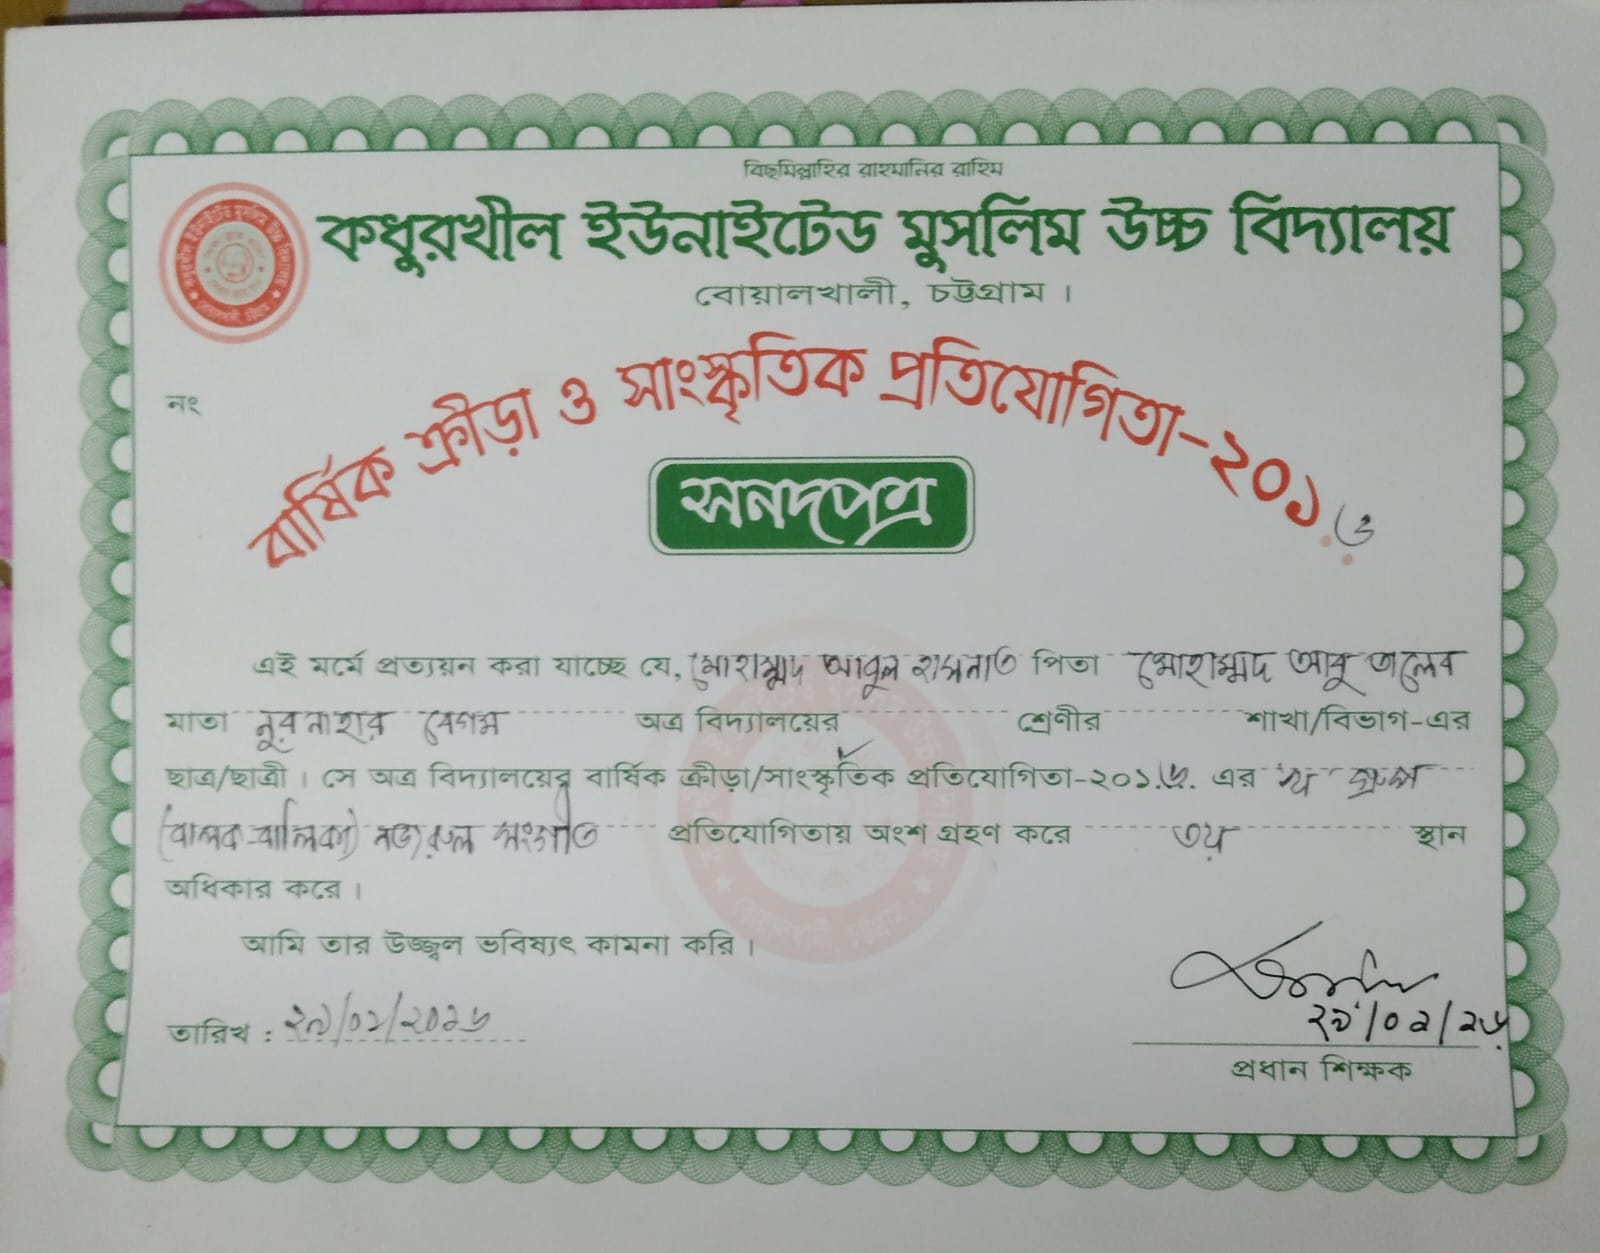 বিছমিল্লাহির রাহমানির রাহিম
কধুরখীল ইউনাইটেড মুসলিম উচ্চ বিদ্যালয়
বোয়ালখালী, চট্টগ্রাম ।
নং
বার্ষিক ক্রীড়া ও সাংস্কৃতিক প্রতিযোগিতা-২০১৬
সনদপত্র
এই মর্মে প্রত্যয়ন করা যাচ্ছে যে, মোহাম্মদ আবুল হাসনাত পিতা মোহাম্মদ আবু তালেব
মাতা নুরনাহার বেগম অত্র বিদ্যালয়ের শ্রেণীর শাখা/বিভাগ-এর
ছাত্র/ছাত্রী । সে অত্র বিদ্যালয়ের বার্ষিক ক্রীড়া/সাংস্কৃতিক প্রতিযোগিতা-২০১৬ এর গ্রুপ
(বালক-বালিকা) নজরুল সংগীত প্রতিযোগিতায় অংশ গ্রহণ করে ৩য় স্থান
অধিকার করে ।
আমি তার উজ্জ্বল ভবিষ্যৎ কামনা করি ।
তারিখ : ২৯/০২/২০১৬
২৯/০২/১৬
প্রধান শিক্ষক